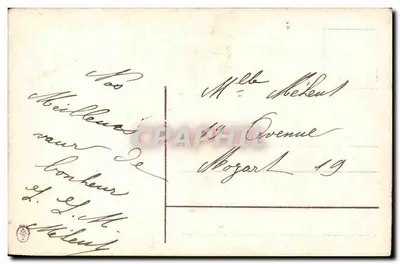 Nos
Meilleurs
vœux de
bonheur
L. L. M
Mélent
Mlle Mélent
19 Avenue
Mozart 19
CPAPHIL